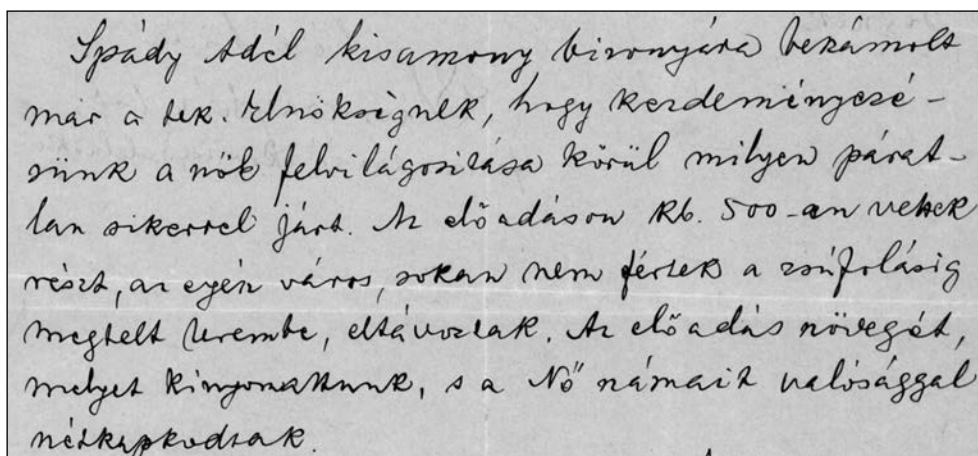 Spády Adél kisasszony bizonyára beszámolt
már a tek. Elnökségnek, hogy kezdeményezé-
sünk a nők felvilágosítása körül milyen párat-
lan sikerrel járt. Az előadáson kb. 500-an vettek
részt, az egész város, sokan nem fértek a zsúfolásig
megtelt terembe, eltávoztak. Az előadás szövegét,
melyet kinyomattunk, s a Nő számait valósággal
szétkapkodták.